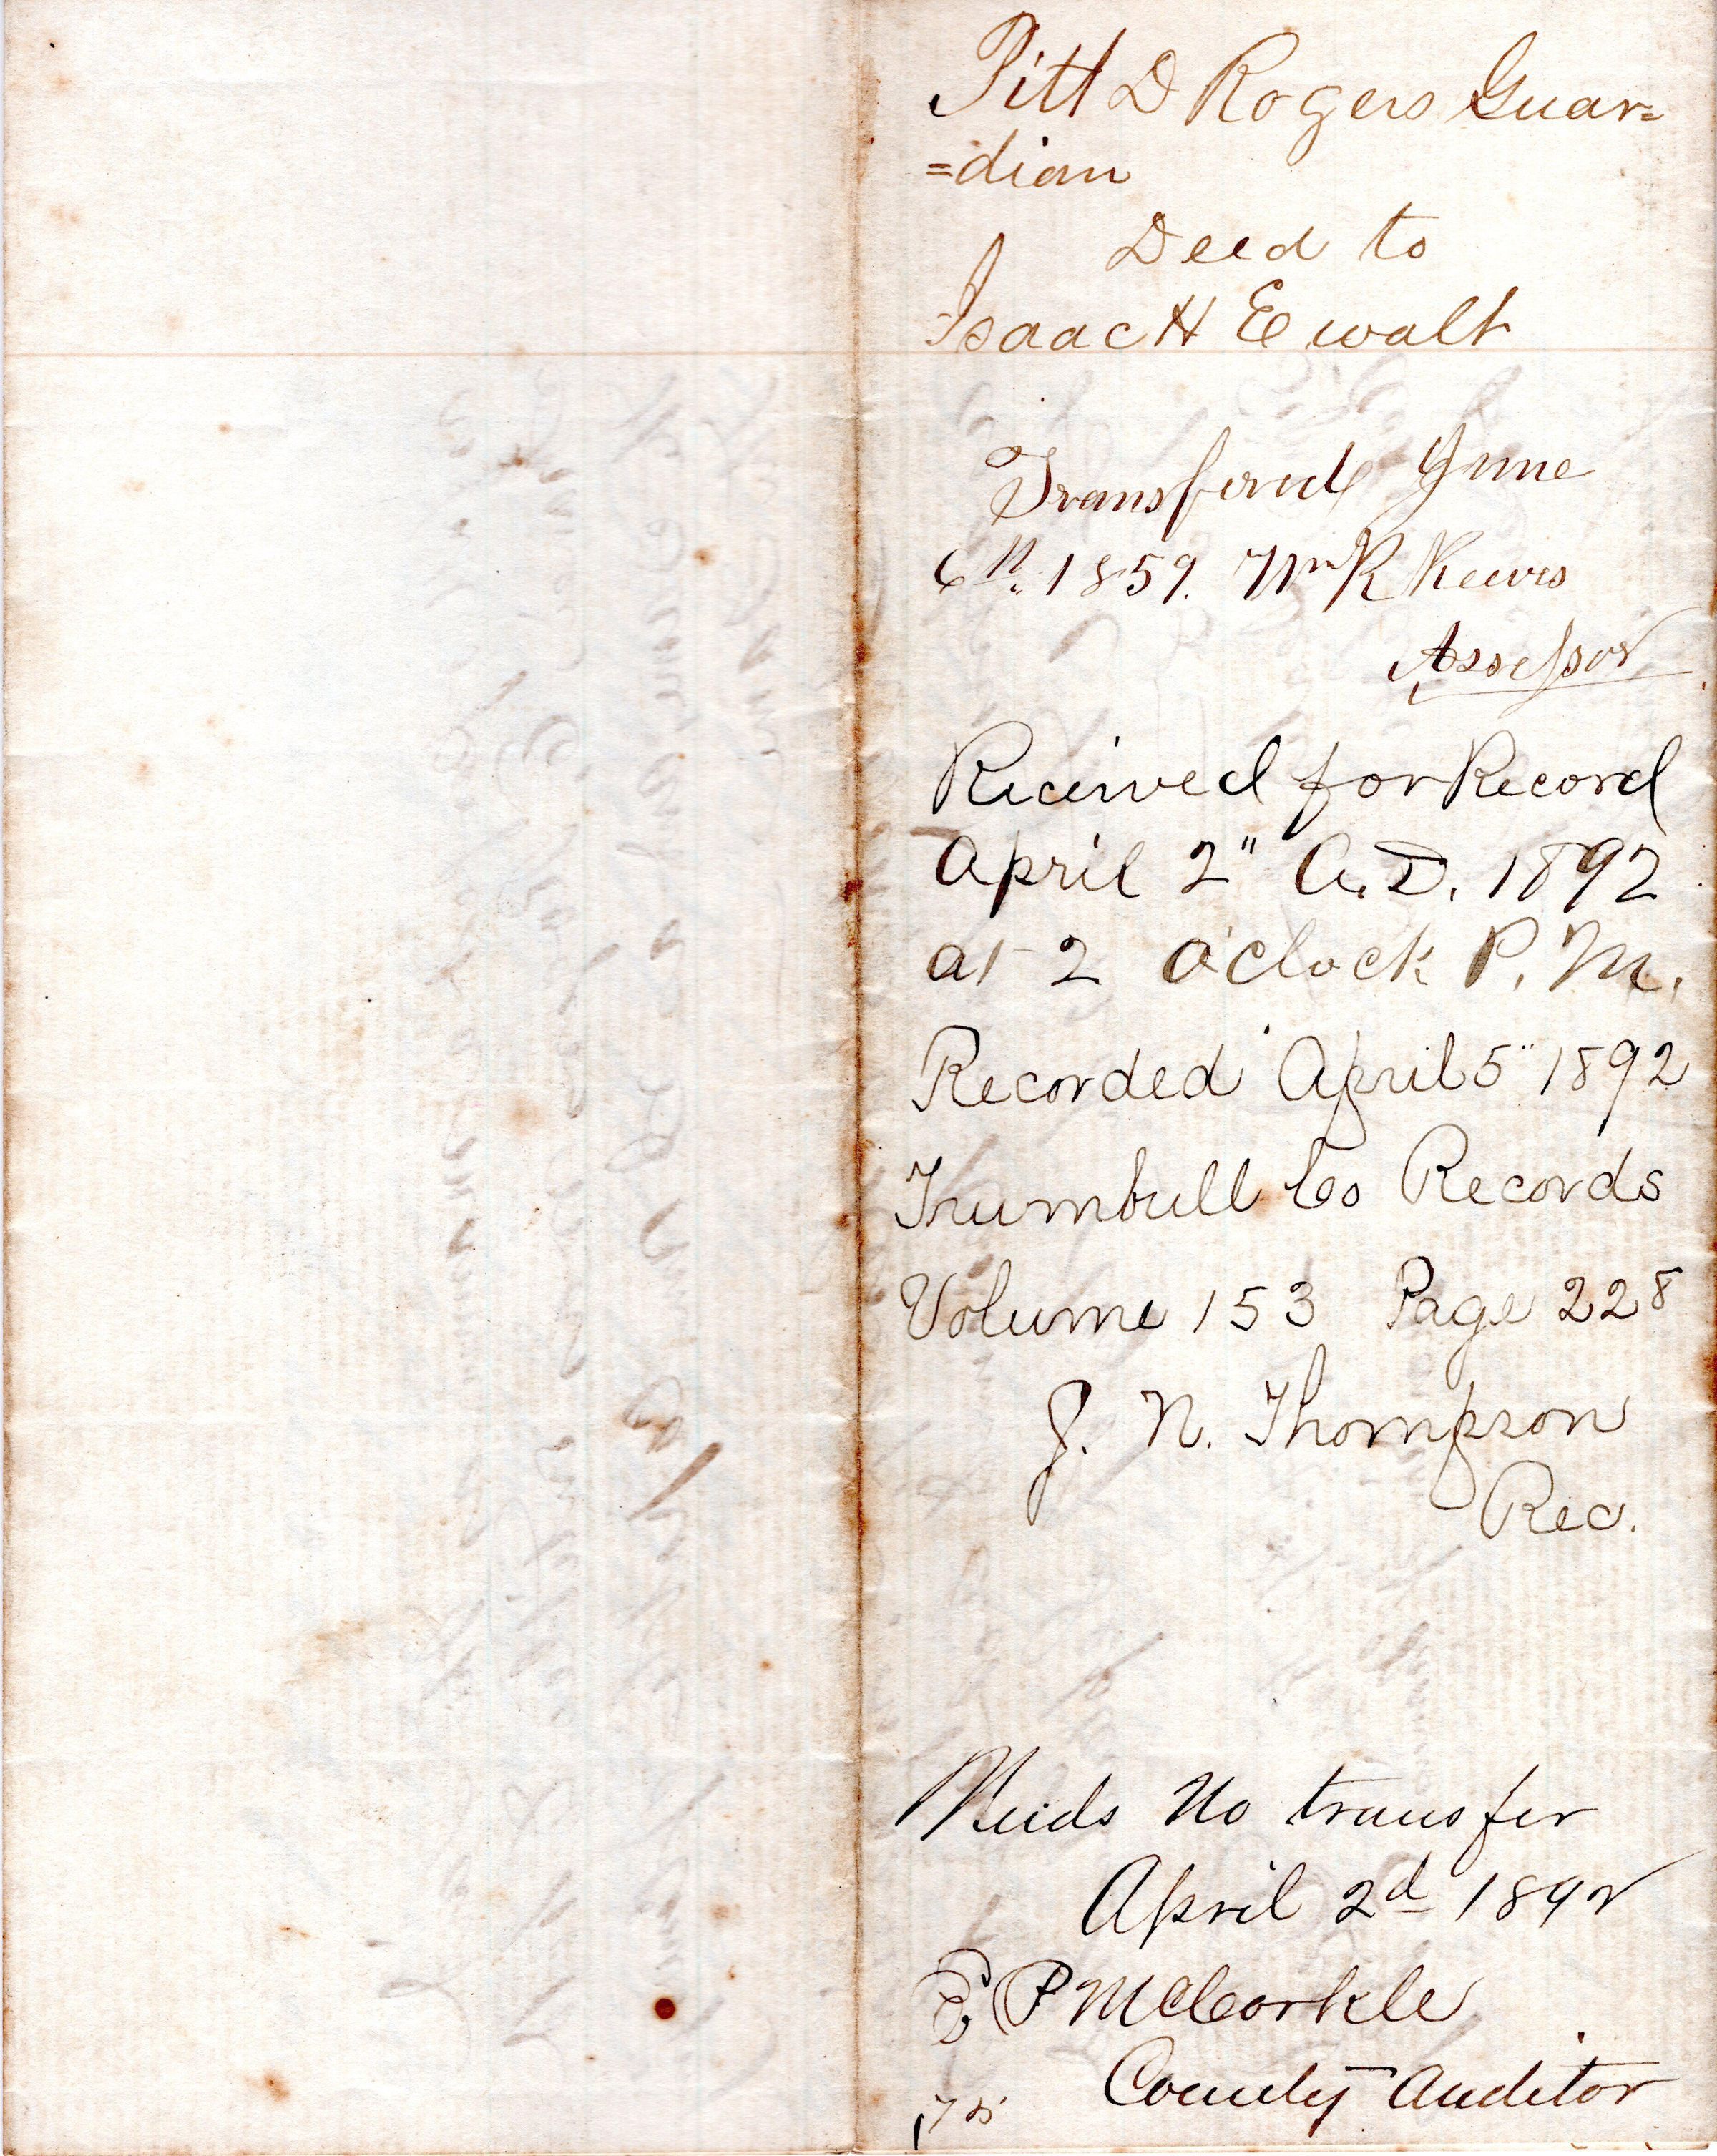 Pitt D Rogers Guar=
=dian
Deed to
Isaac H Ewalt
Transfered June
6th. 1859. Wm R
Assessor
Received for Record
April 2" A.D. 1892
at 2 O'clock P.M.
Recorded April 5" 1892
Trumbull Co Records
Volume 153 Page 228
J. N. Thompson
Rec.
Needs No transfer
April 2d 1892
P McCorkle
County Auditor
,75